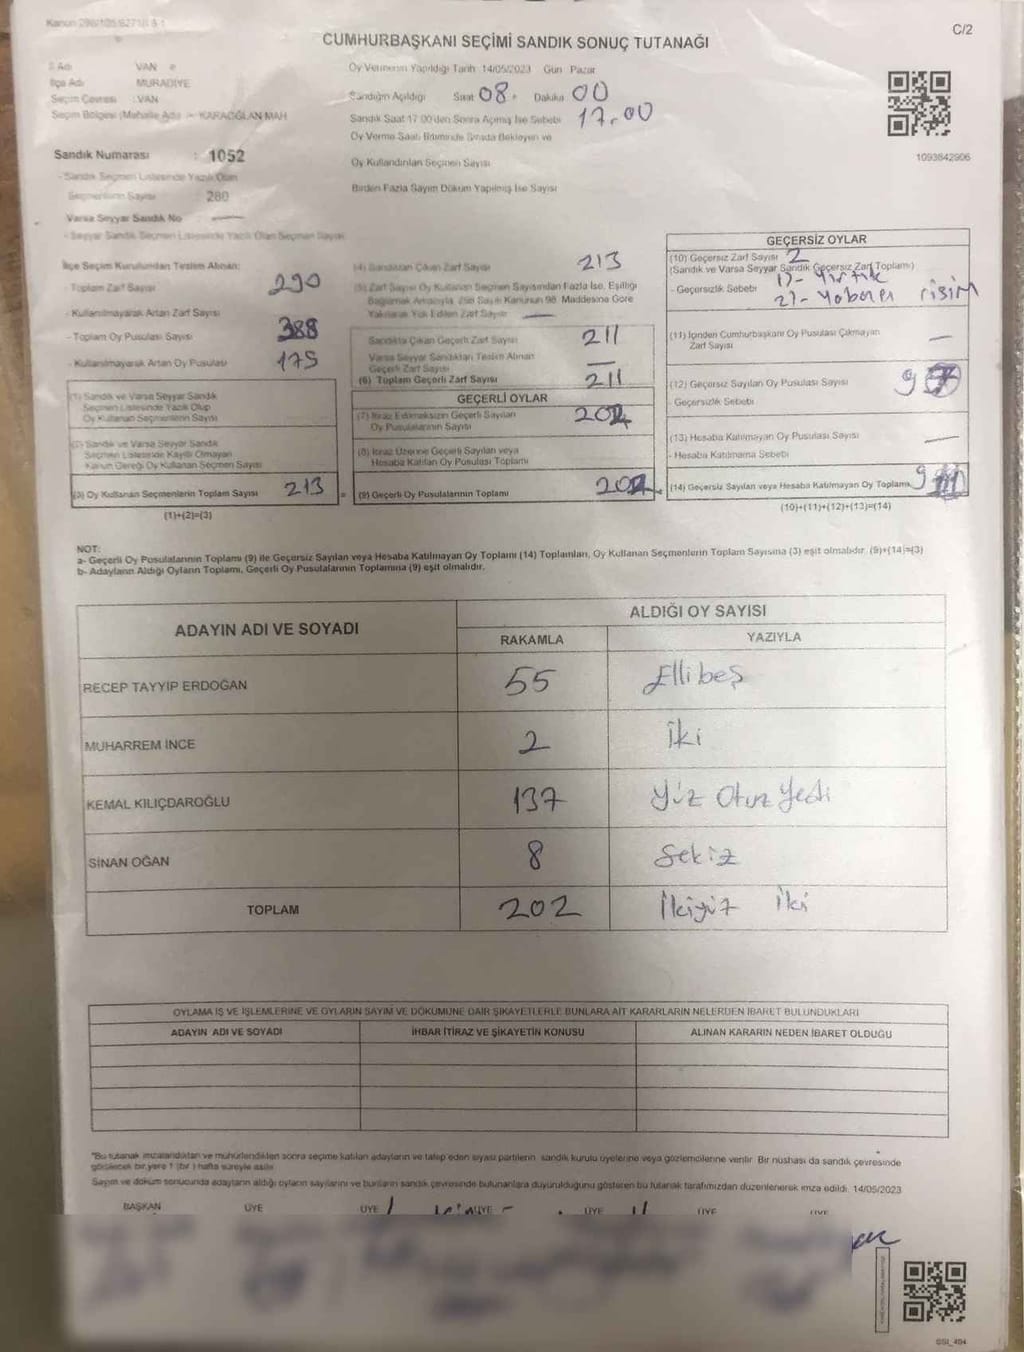 C/2
CUMHURBAŞKANI SEÇİMİ SANDIK SONUÇ TUTANAĞI
İl Adı VAN
İlçe Adı MURADİYE
Seçim Çevresi : VAN
Seçim Bölgesi (Mahalle Adı) KARAOĞLAN MAH
Oy Vermenin Yapıldığı Tarih 14/05/2023 Gün Pazar
Sandığın Açıldığı Saat 08 Dakika 00
Sandık Saat 17 00'den Sonra Açılmış İse Sebebi 17.00
Oy Verme Saati Bitiminde Sırada Bekleyen ve
Oy Kullandırılan Seçmen Sayısı
Birden Fazla Sayım Döküm Yapılmış İse Sayısı
1093842906
Sandık Numarası : 1052
- Sandık Seçmen Listesinde Yazılı Olan
Seçmenlerin Sayısı : 280
Varsa Seyyar Sandık No
- Seyyar Sandık Seçmen Listesinde Yazılı Olan Seçmen Sayısı
İlçe Seçim Kurulundan Teslim Alınan:
- Toplam Zarf Sayısı 290
- Kullanılmayarak Artan Zarf Sayısı
- Toplam Oy Pusulası Sayısı 388
- Kullanılmayarak Artan Oy Pusulası 175
(1) Sandık ve Varsa Seyyar Sandık
Seçmen Listesinde Yazılı Olup
Oy Kullanan Seçmenlerin Sayısı
(2) Sandık ve Varsa Seyyar Sandık
Seçmen Listesinde Kayıtlı Olmayan
Kanun Gereği Oy Kullanan Seçmen Sayısı
(3) Oy Kullanan Seçmenlerin Toplam Sayısı 213
(1)+(2)=(3)
(4) Sandıktan Çıkan Zarf Sayısı 213
(5) Zarf Sayısı Oy Kullanan Seçmen Sayısından Fazla İse, Eşitliği
Sağlamak Amacıyla 298 Sayılı Kanunun 98. Maddesine Göre
Yakılarak Yok Edilen Zarf Sayısı
Sandıkta Çıkan Geçerli Zarf Sayısı 211
Varsa Seyyar Sandıktan Teslim Alınan
Geçerli Zarf Sayısı —
(6) Toplam Geçerli Zarf Sayısı 211
GEÇERLİ OYLAR
(7) İtiraz Edilmeksizin Geçerli Sayılan
Oy Pusulalarının Sayısı 202
(8) İtiraz Üzerine Geçerli Sayılan veya
Hesaba Katılan Oy Pusulası Toplamı
(9) Geçerli Oy Pusulalarının Toplamı 202
GEÇERSİZ OYLAR
(10) Geçersiz Zarf Sayısı 2
(Sandık ve Varsa Seyyar Sandık Geçersiz Zarf Toplamı)
- Geçersizlik Sebebi 1)- Yırtık
2)- Yabancı
(11) İçinden Cumhurbaşkanı Oy Pusulası Çıkmayan
Zarf Sayısı —
(12) Geçersiz Sayılan Oy Pusulası Sayısı 9
- Geçersizlik Sebebi
(13) Hesaba Katılmayan Oy Pusulası Sayısı —
- Hesaba Katılmama Sebebi
(14) Geçersiz Sayılan veya Hesaba Katılmayan Oy Toplamı 9
(10)+(11)+(12)+(13)=(14)
NOT:
a- Geçerli Oy Pusulalarının Toplamı (9) ile Geçersiz Sayılan veya Hesaba Katılmayan Oy Toplamı (14) Toplamları, Oy Kullanan Seçmenlerin Toplam Sayısına (3) eşit olmalıdır. (9)+(14)=(3)
b- Adayların Aldığı Oyların Toplamı, Geçerli Oy Pusulalarının Toplamına (9) eşit olmalıdır.
ADAYIN ADI VE SOYADI
ALDIĞI OY SAYISI
RAKAMLA YAZIYLA
RECEP TAYYİP ERDOĞAN 55 Ellibeş
MUHARREM İNCE 2 İki
KEMAL KILIÇDAROĞLU 137 Yüz Otuz Yedi
SİNAN OĞAN 8 Sekiz
TOPLAM 202 İkiyüz İki
OYLAMA İŞ VE İŞLEMLERİNE VE OYLARIN SAYIM VE DÖKÜMÜNE DAİR ŞİKAYETLERLE BUNLARA AİT KARARLARIN NELERDEN İBARET BULUNDUKLARI
ADAYIN ADI VE SOYADI İHBAR İTİRAZ VE ŞİKAYETİN KONUSU ALINAN KARARIN NEDEN İBARET OLDUĞU
"Bu tutanak imzalandıktan ve mühürlendikten sonra seçime katılan adayların ve talep eden siyasi partilerin sandık kurulu üyelerine veya gözlemcilerine verilir. Bir nüshası da sandık çevresinde
görülecek bir yere 1 (bir) hafta süreyle asılır.
Sayım ve döküm sonucunda adayların aldığı oyların sayılarını ve bunların sandık çevresinde bulunanlara duyurulduğunu gösteren bu tutanak tarafımızdan düzenlenerek imza edildi. 14/05/2023
BAŞKAN ÜYE ÜYE ÜYE ÜYE ÜYE ÜYE